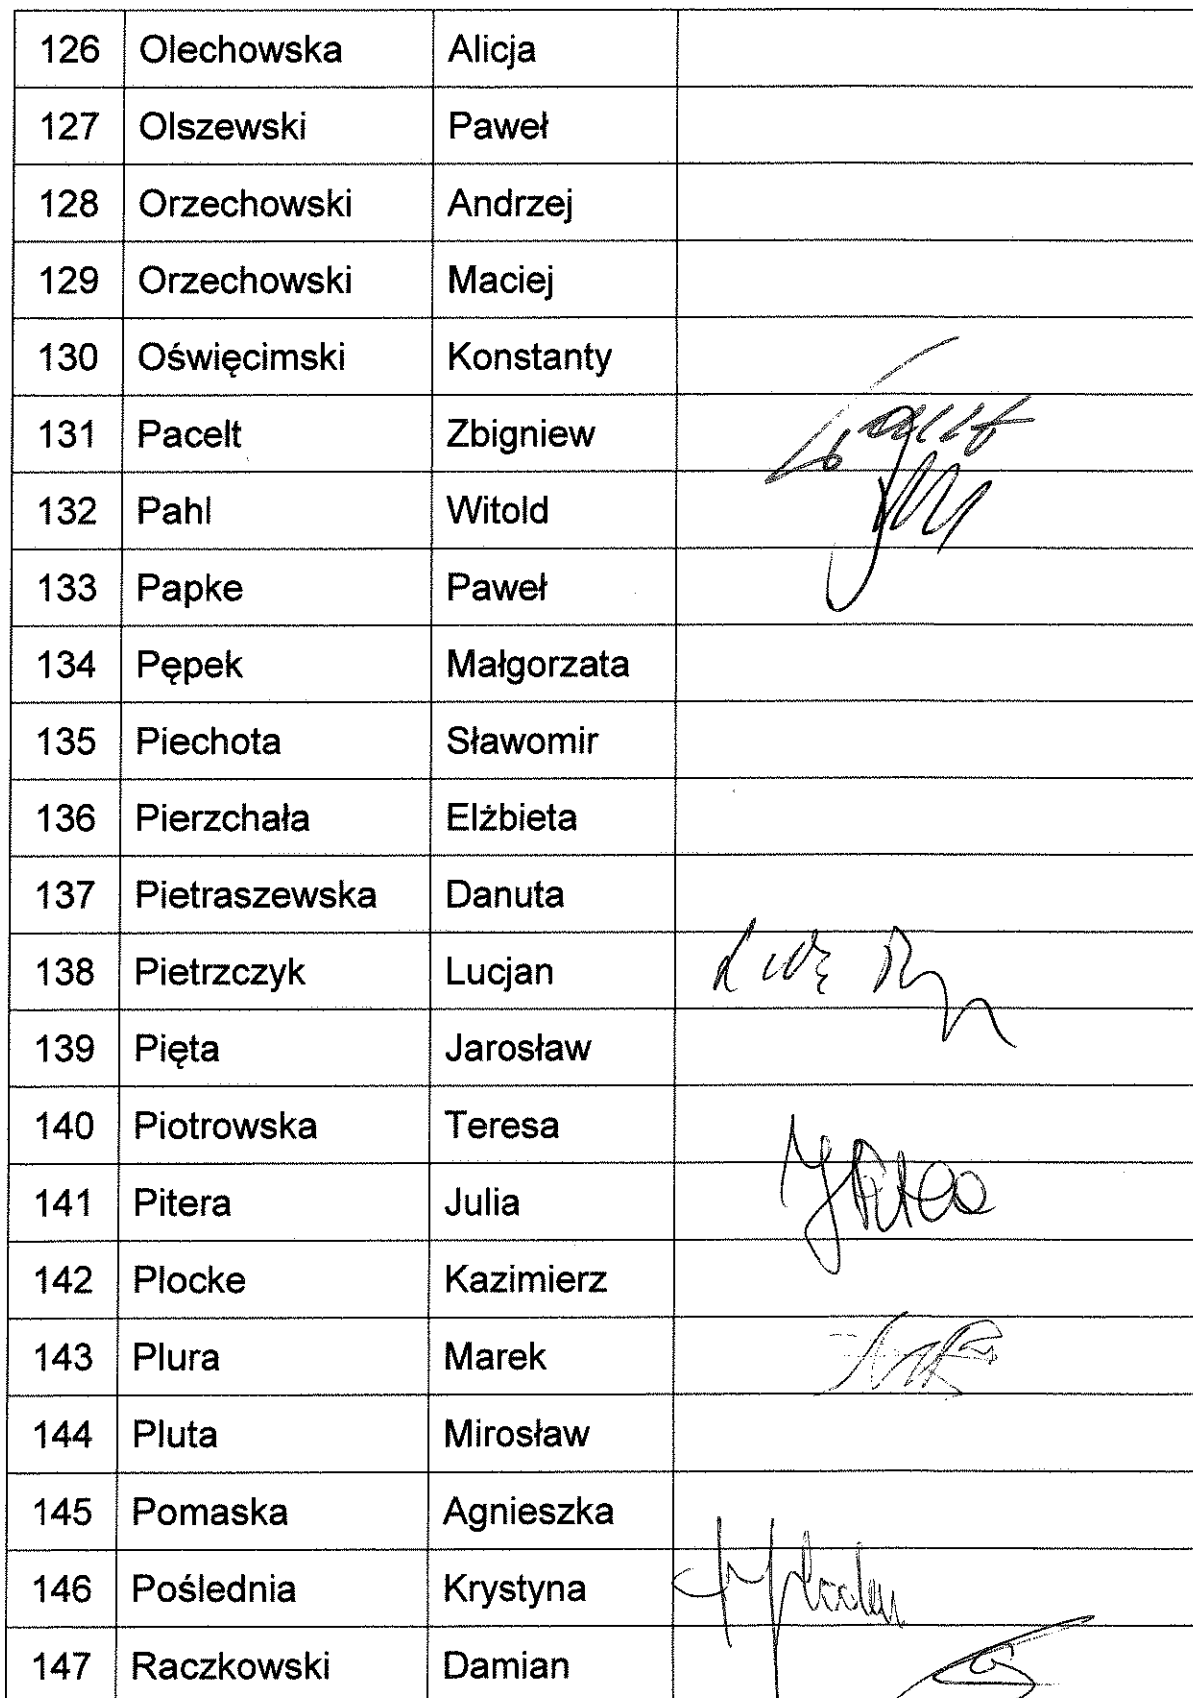 126 Olechowska Alicja
127 Olszewski Paweł
128 Orzechowski Andrzej
129 Orzechowski Maciej
130 Oświęcimski Konstanty
131 Pacelt Zbigniew
132 Pahl Witold
133 Papke Paweł
134 Pępek Małgorzata
135 Piechota Sławomir
136 Pierzchała Elżbieta
137 Pietraszewska Danuta
138 Pietrzczyk Lucjan
139 Pięta Jarosław
140 Piotrowska Teresa
141 Pitera Julia
142 Plocke Kazimierz
143 Plura Marek
144 Pluta Mirosław
145 Pomaska Agnieszka
146 Poślednia Krystyna
147 Raczkowski Damian